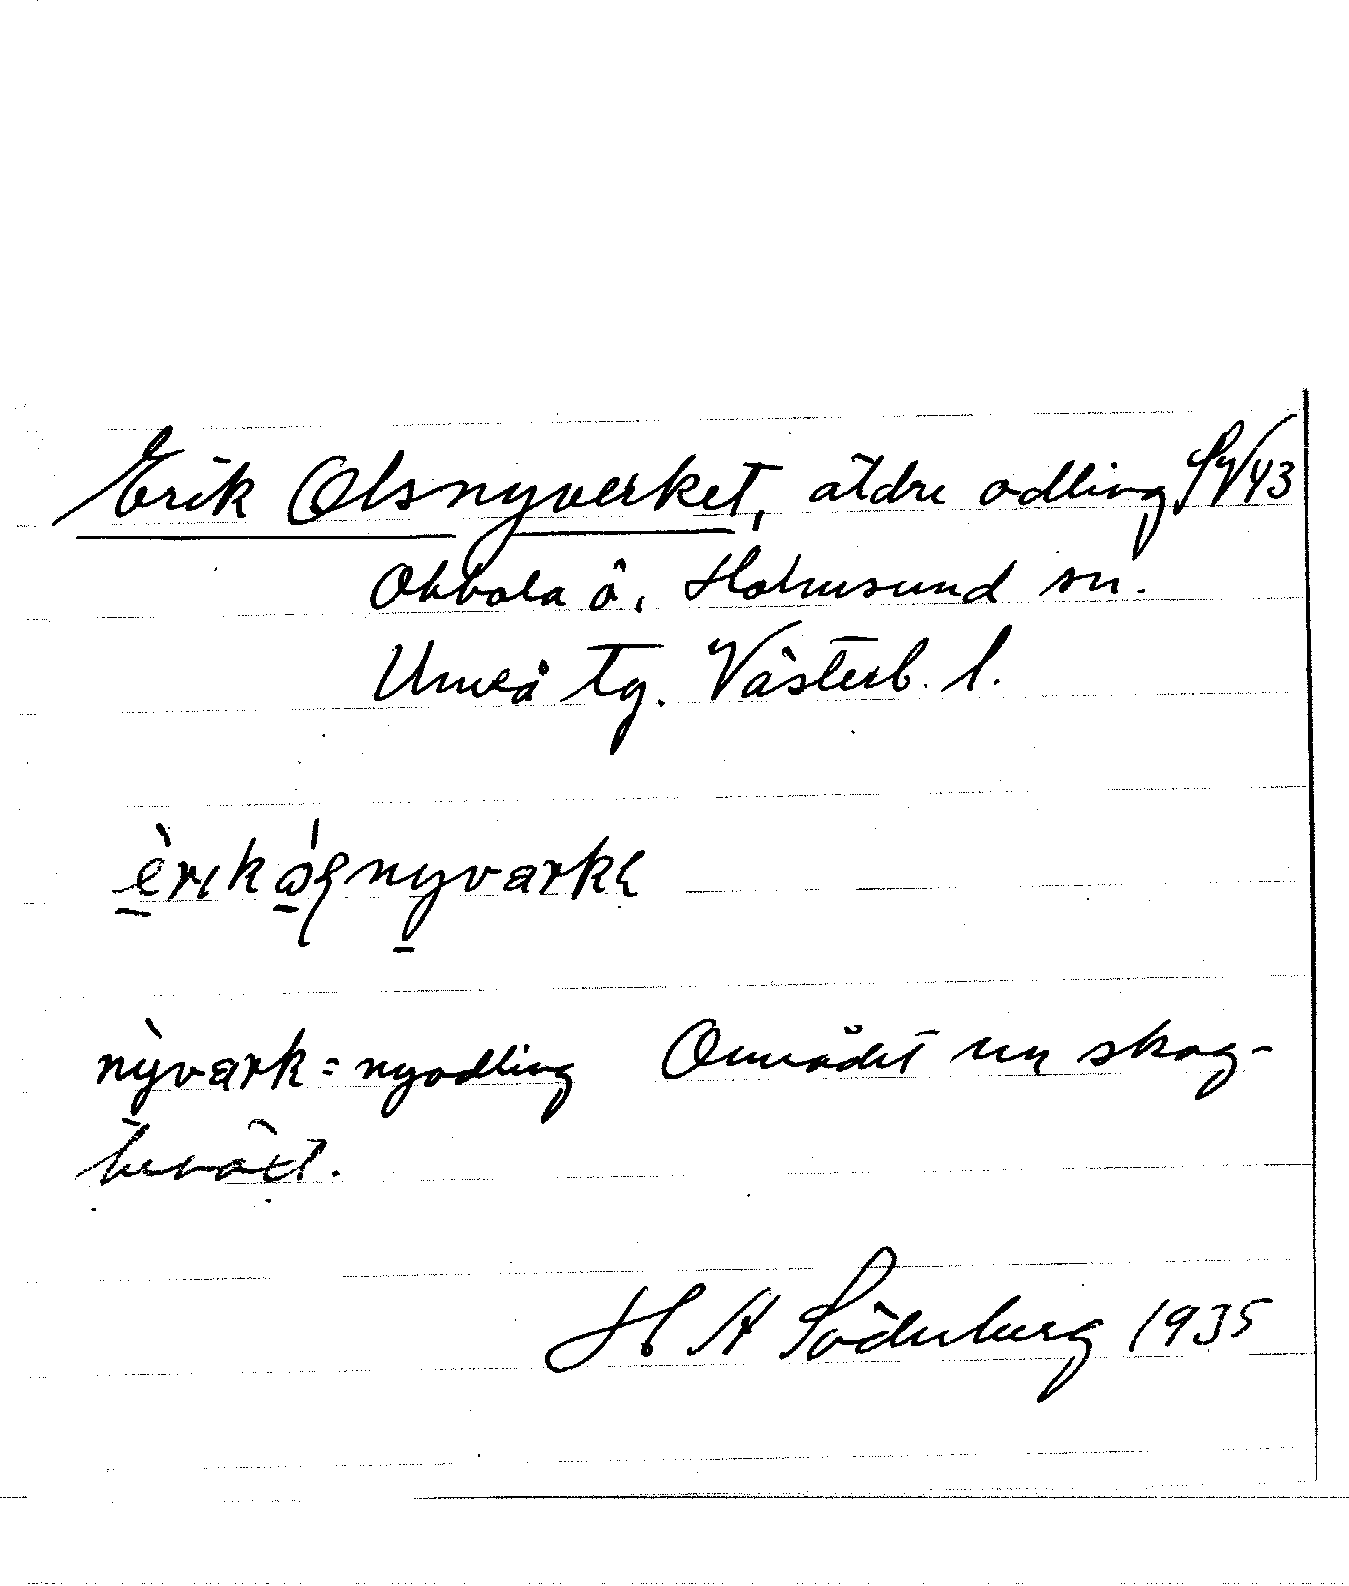 Erik Olsnyverket, äldre odling SV43
Obbola ö, Holmsund sn.
Umeå tg. Västerb. l.
nỳvark = nyodling Området nu skog-
beväxt.
H A Söderberg 1935